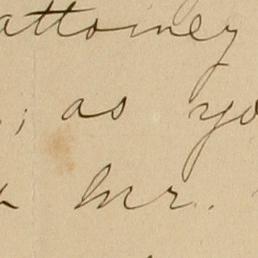 attorney
; as yo
Mr.